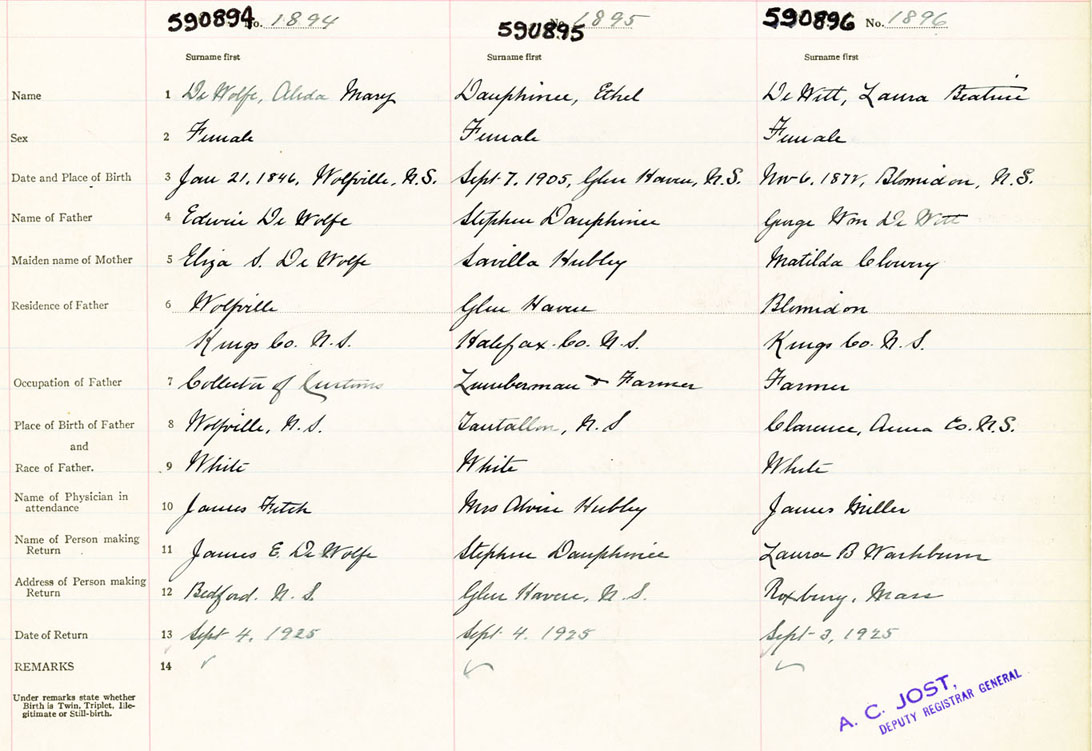 590894 No. 1894 590895 No. 1895 590896 No. 1896
Surname first Surname first Surname first
Name 1 De Wolfe, Alida Mary Dauphinee, Ethel De Witt, Laura Beatrice
Sex 2 Female Female Female
Date and Place of Birth 3 Jan 21, 1846, Wolfville, N.S. Sept 7, 1905, Glen Haven, N.S. Nov 6, 1872, Blomidon, N.S.
Name of Father 4 Edwin De Wolfe Stephen Dauphinee George Wm De Witt
Maiden name of Mother 5 Eliza S. De Wolfe Savilla Hubley Matilda Clowry
Residence of Father 6 Wolfville Glen Haven Blomidon
Kings Co. N.S. Halifax Co. N.S. Kings Co. N.S.
Occupation of Father 7 Collector of Customs Lumberman & Farmer Farmer
Place of Birth of Father 8 Wolfville, N.S. Tantallon, N.S Clarence, Anna Co. N.S.
and
Race of Father. 9 White White White
Name of Physician in
attendance 10 James Fitch Mrs Hubley James Miller
Name of Person making
Return 11 James E. De Wolfe Stephen Dauphinee Laura B Washburn
Address of Person making
Return 12 Bedford. N.S. Glen Haven, N.S. Roxbury, Mass
Date of Return 13 Sept 4, 1925 Sept 4. 1925 Sept 3, 1925
REMARKS 14
Under remarks state whether
Birth is Twin, Triplet, Ille-
gitimate or Still-birth.
A. C. JOST,
DEPUTY REGISTRAR GENERAL